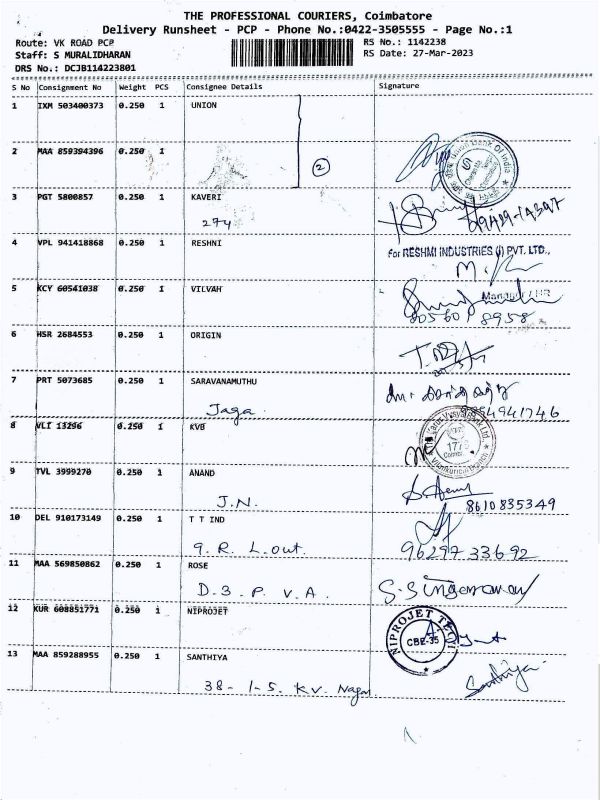 THE PROFESSIONAL COURIERS, Coimbatore
Delivery Runsheet - PCP - Phone No.:0422-3505555 - Page No.:1
Route: VK ROAD PCP
RS No.: 1142238
Staff: S MURALIDHARAN
RS Date: 27-Mar-2023
DRS No.: DCJB114223801
S No Consignment No Weight PCS Consignee Details Signature
1 IXM 503400373 0.250 1 UNION
2 MAA 859394396 0.250 1
2
Union Bank Of India
3 PGT 5800857 0.250 1 KAVERI
274
4 VPL 941418868 0.250 1 RESHNI
For RESHMI INDUSTRIES (I) PVT. LTD.,
5 KCY 60541038 0.250 1 VILVAH
Manager / HR
6 HSR 2684553 0.250 1 ORIGIN
7 PRT 5073685 0.250 1 SARAVANAMUTHU
Jaga
8 VLI 13296 0.250 1 KVB
9 TVL 3999270 0.250 1 ANAND
J.N.
8610835349
10 DEL 910173149 0.250 1 T T IND
9. R. L. out.
96297 33692
11 MAA 569850862 0.250 1 ROSE
D. 3. P. V. A.
12 KUR 608851771 0.250 1 NIPROJET
NIPROJET TECH
CBE-35
13 MAA 859288955 0.250 1 SANTHIYA
38- 1-5. KV. Nagar
Santhiya